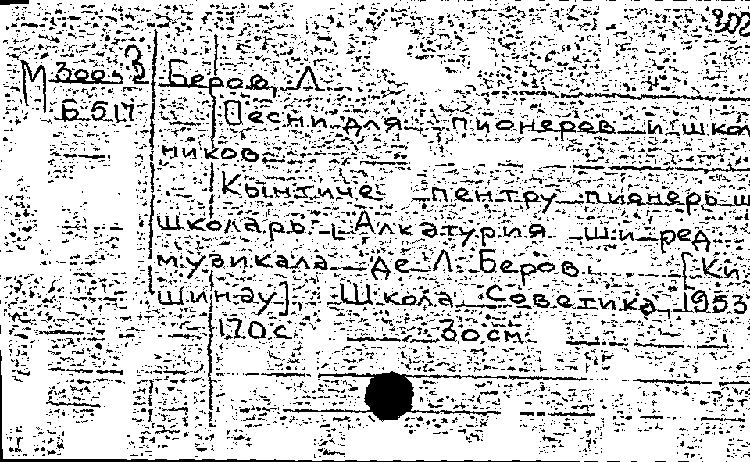 М 3005/3 Беров, Л
Б 517 Песни для пионеров и школь
ников.
Кынтиче пентру пионерь ши
школарь. Алкэтуриа ши ред.
музикалэ де Л. Беров. [Ки
шинэу], Школа Советикэ, 1953
170 с 30 см.